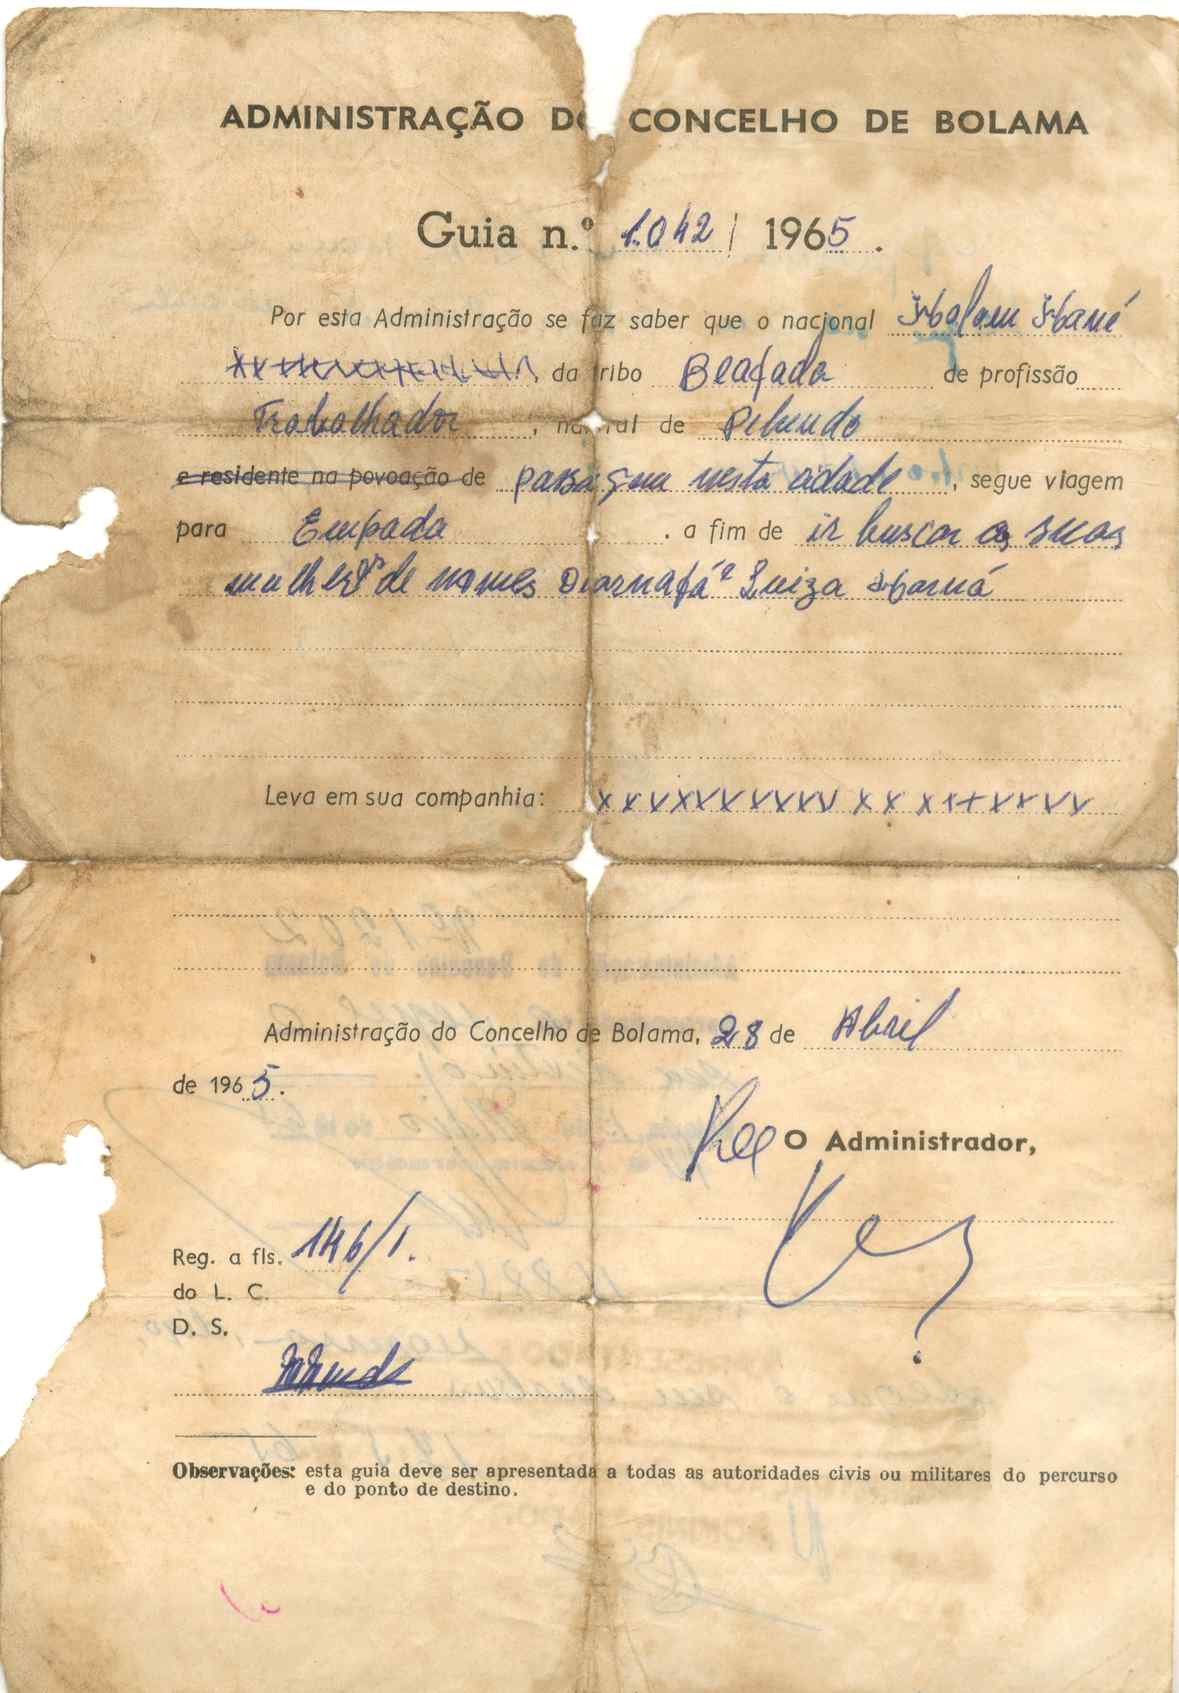 ADMINISTRAÇÃO DO CONCELHO DE BOLAMA
Guia n.º 1.042 / 1965.
Por esta Administração se faz saber que o nacional
da tribo Beafada de profissão
Trabalhador, natural de
e residente na povoação de nesta cidade, segue viagem
para Empada. a fim de ir buscar as suas
mulheres de nomes Luiza
Leva em sua companhia:
Administração do Concelho de Bolama, 28 de Abril
de 1965.
O Administrador,
Reg. a fls. 146/1.
do L. C.
D. S.
Observações: esta guia deve ser apresentada a todas as autoridades civis ou militares do percurso
e do ponto de destino.